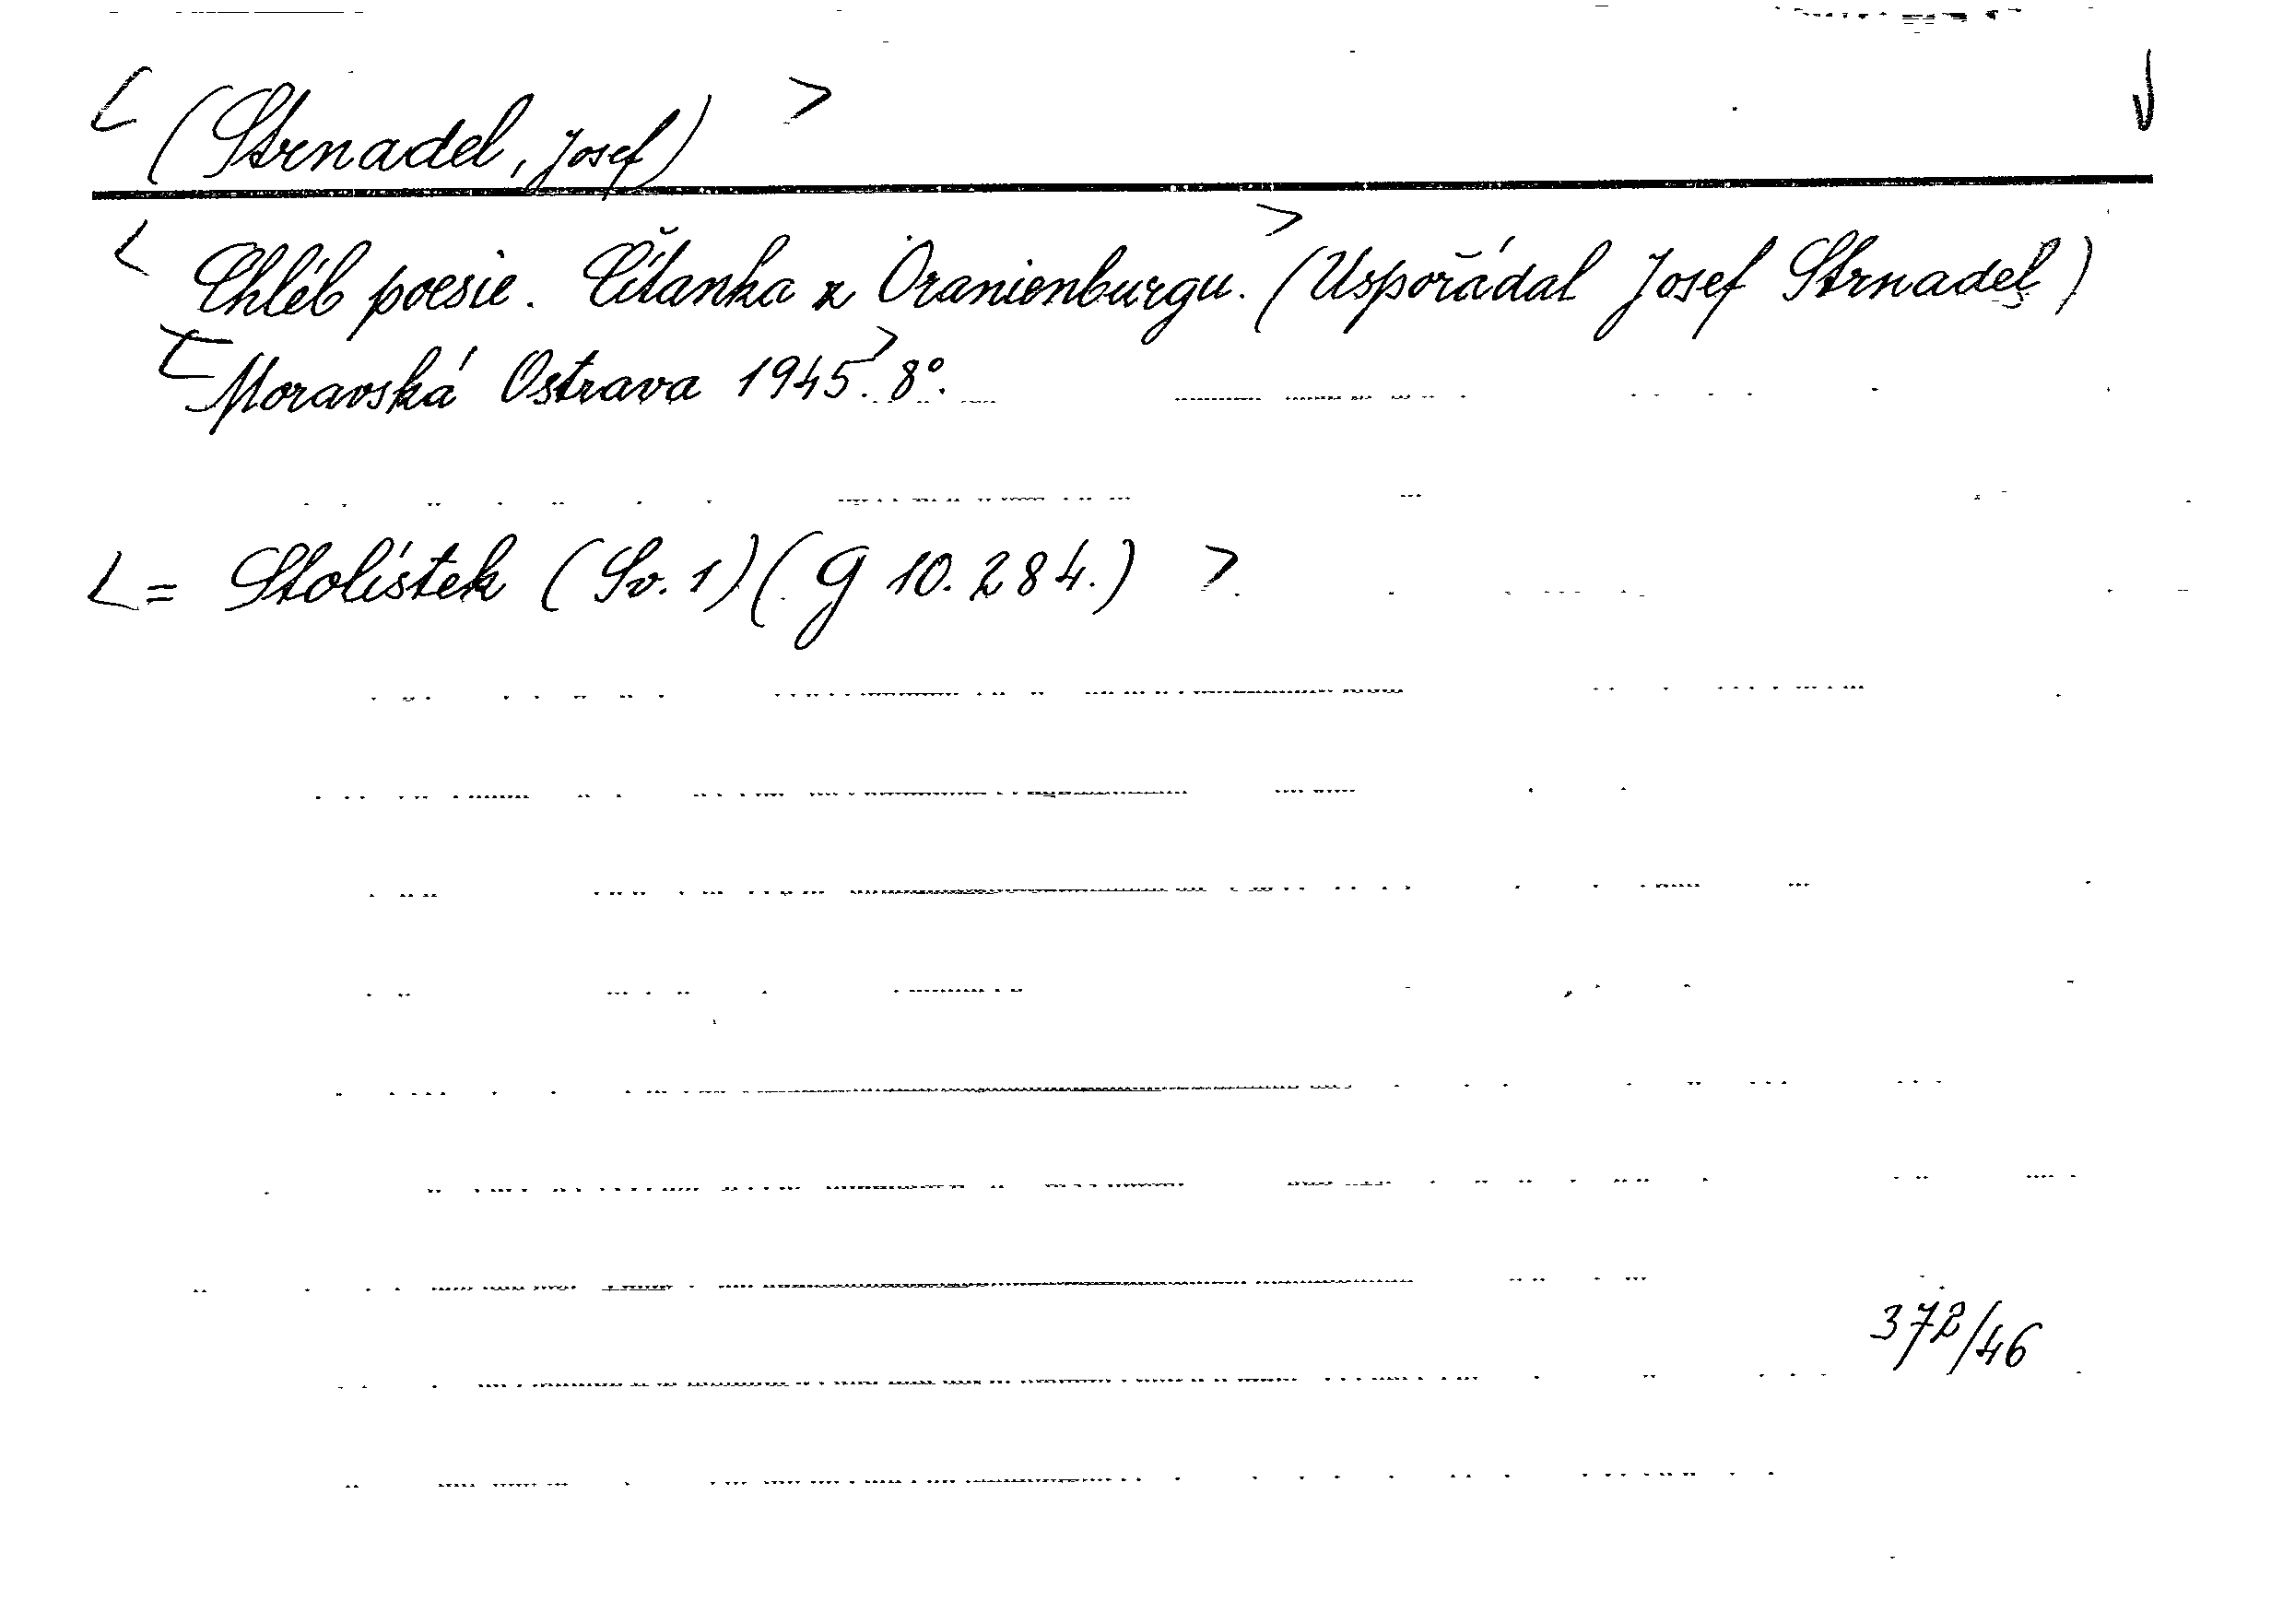 < (Strnadel, Josef) >
< Chléb poesie. Čítanka z Oranienburgu. > (Uspořádal Josef Strnadel)
< Moravská Ostrava 1945. > 8°.
< = Stolístek (Sv. 1) (G 10.284.) >
372/46